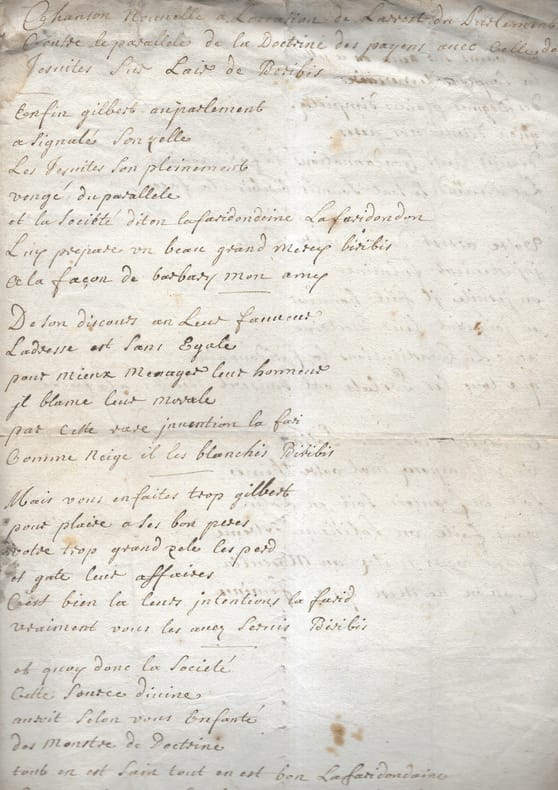 Chanson Nouvelle a Loccation de Larrest du Parlement
Contre le parallele de la Doctrine des payens avec Celle des
Jesuites Sur Lair de Biribis
Enfin gilbert au parlement
a Signalé Son zelle
Les Jesuites Son pleinement
vengé du parallele
et la Societé dit on lafaridondaine Lafaridondon
Luy prepare un beau grand Mercy biribis
a la façon de barbary mon amy
De son discours en Leur faveur
Ladresse est sans Egale
pour mieux Menager leur honneur
jl blame leur morale
par Cette rare jnvention la fari
Comme Neige il les blanchis Biribis
Mais vous en faites trop gilbert
pour plaire a Ses bon peres
votre trop grand zele les perd
et gate leur affaires
C'est bien la leurs jntentions la farid
vraiment vous les avez Servis Biribis
et quoy donc la Societé
Cette Source divine
auroit Selon vous Enfanté
des Monstre de Doctrine
tout en est Sain tout en est bon Lafaridondaine